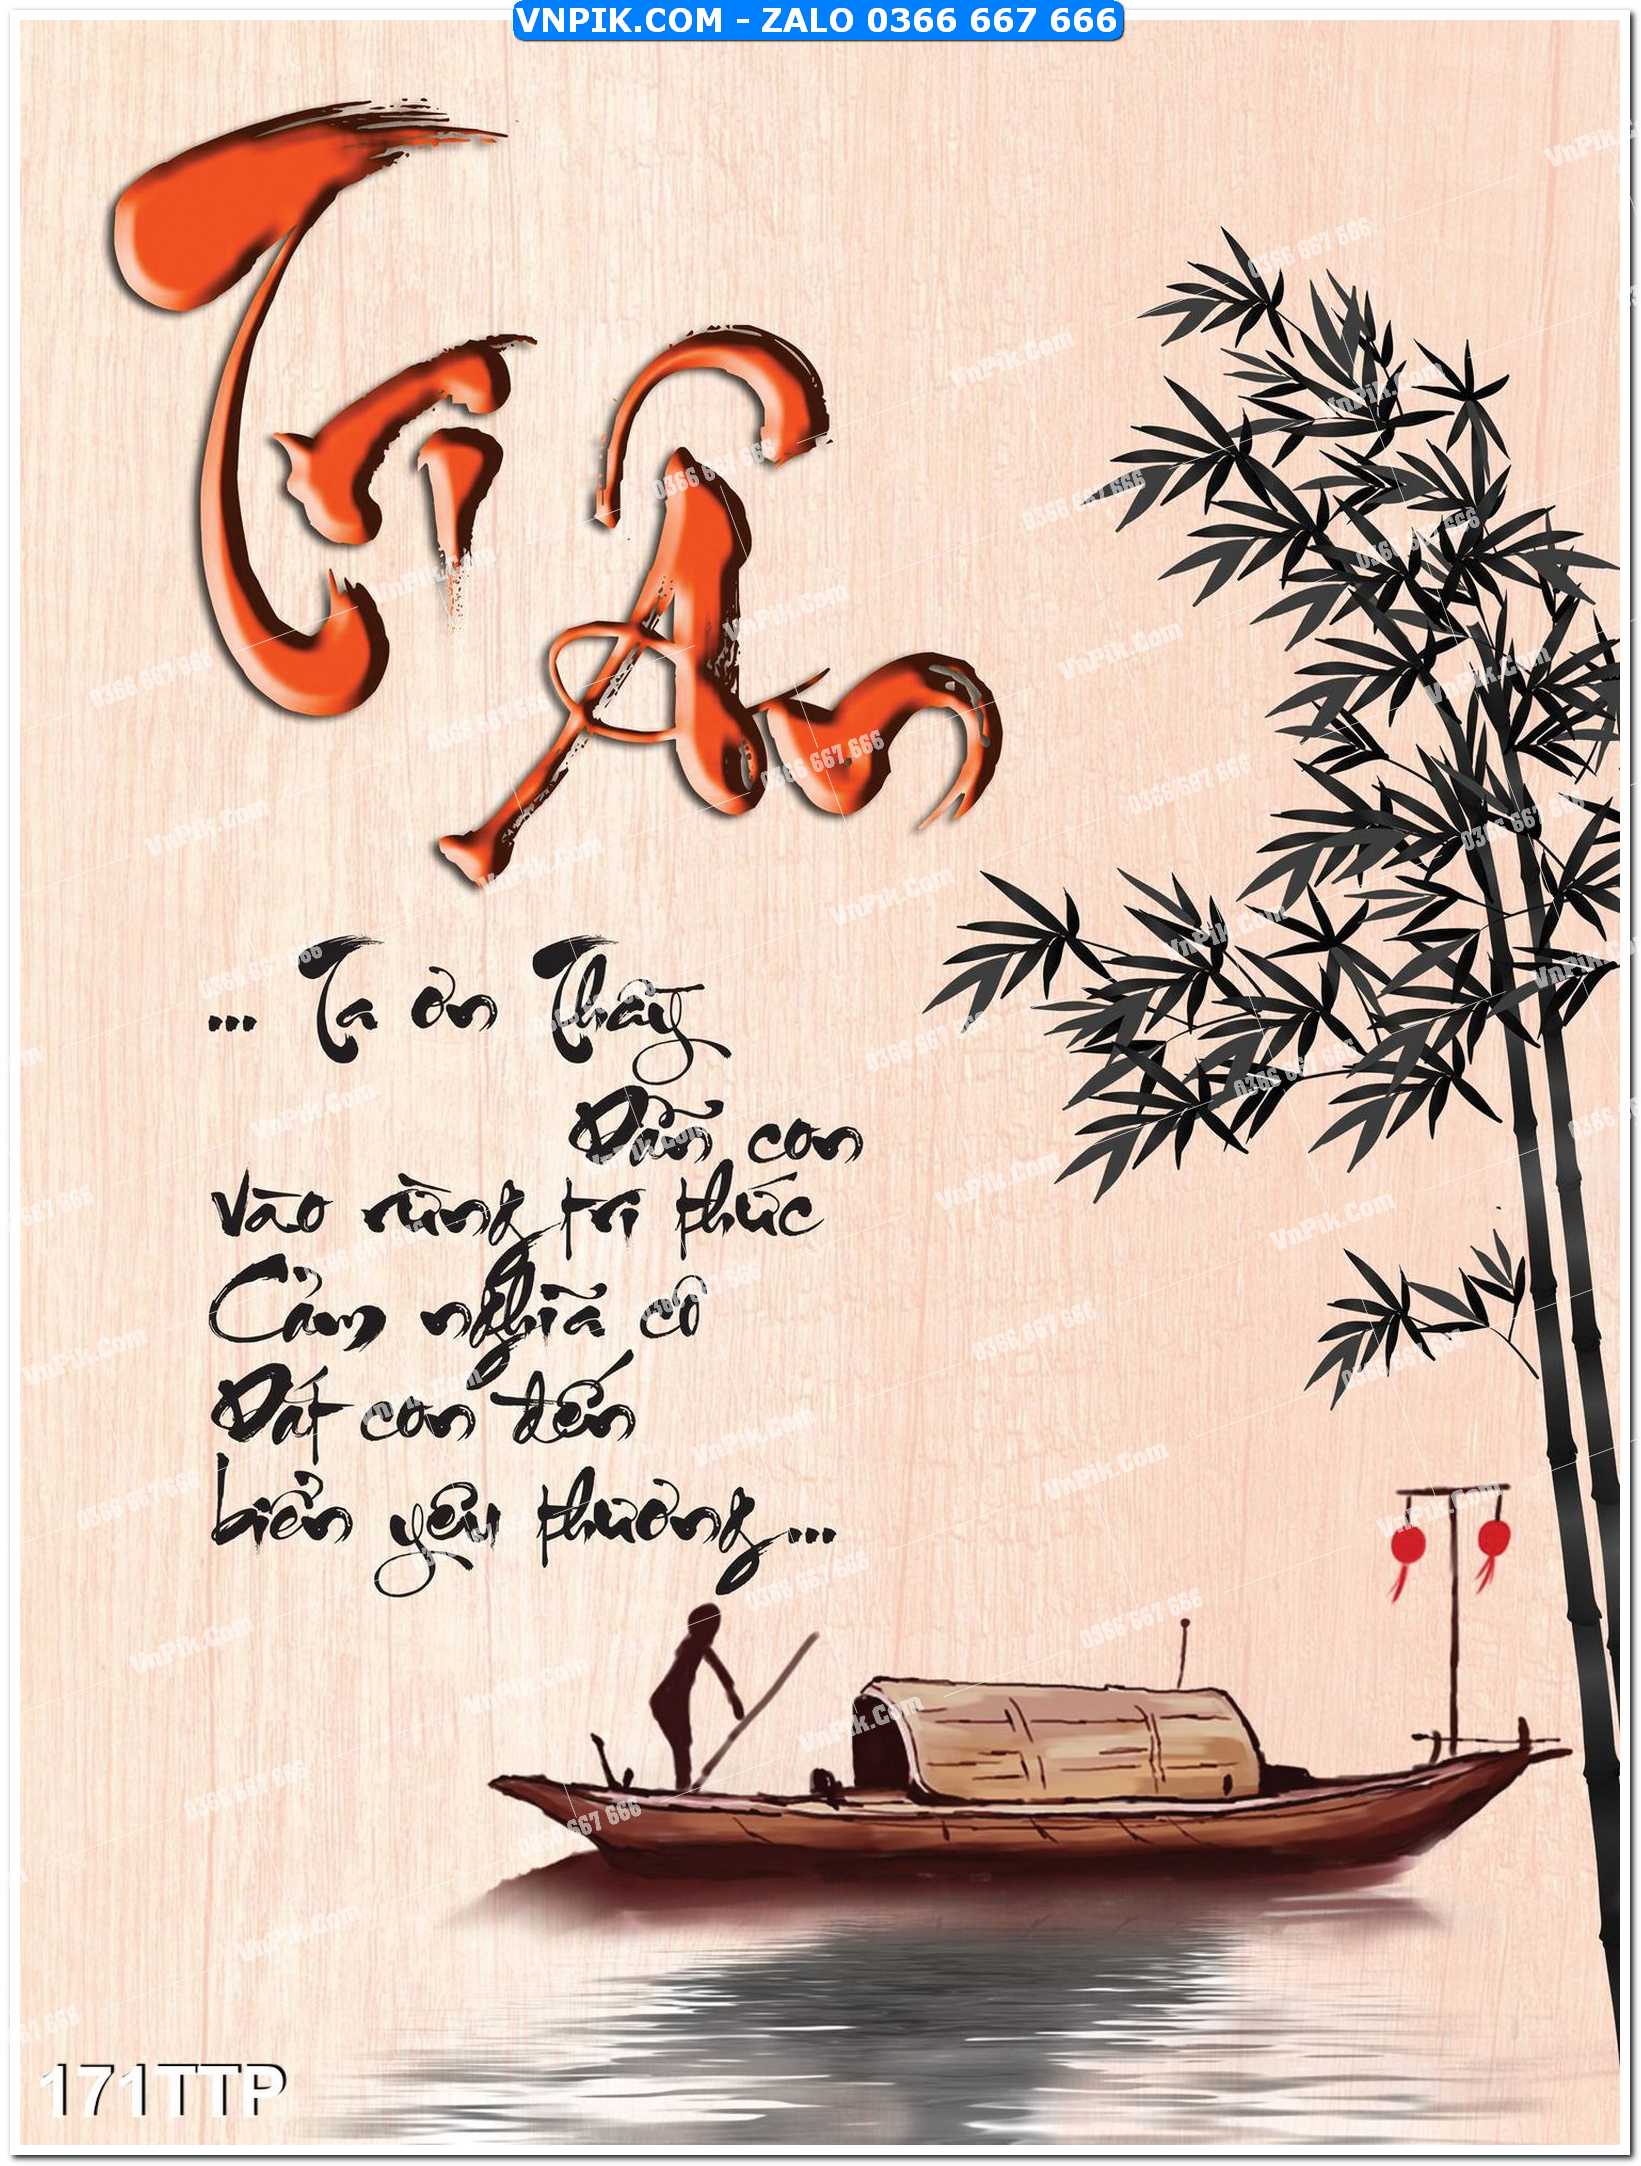 VNPIK.COM - ZALO 0366 667 666
Tri
Ân
... Tạ ơn Thầy
Dẫn con
vào rừng tri thức
Cảm nghĩa cô
Dắt con đến
biển yêu thương...
171TTP